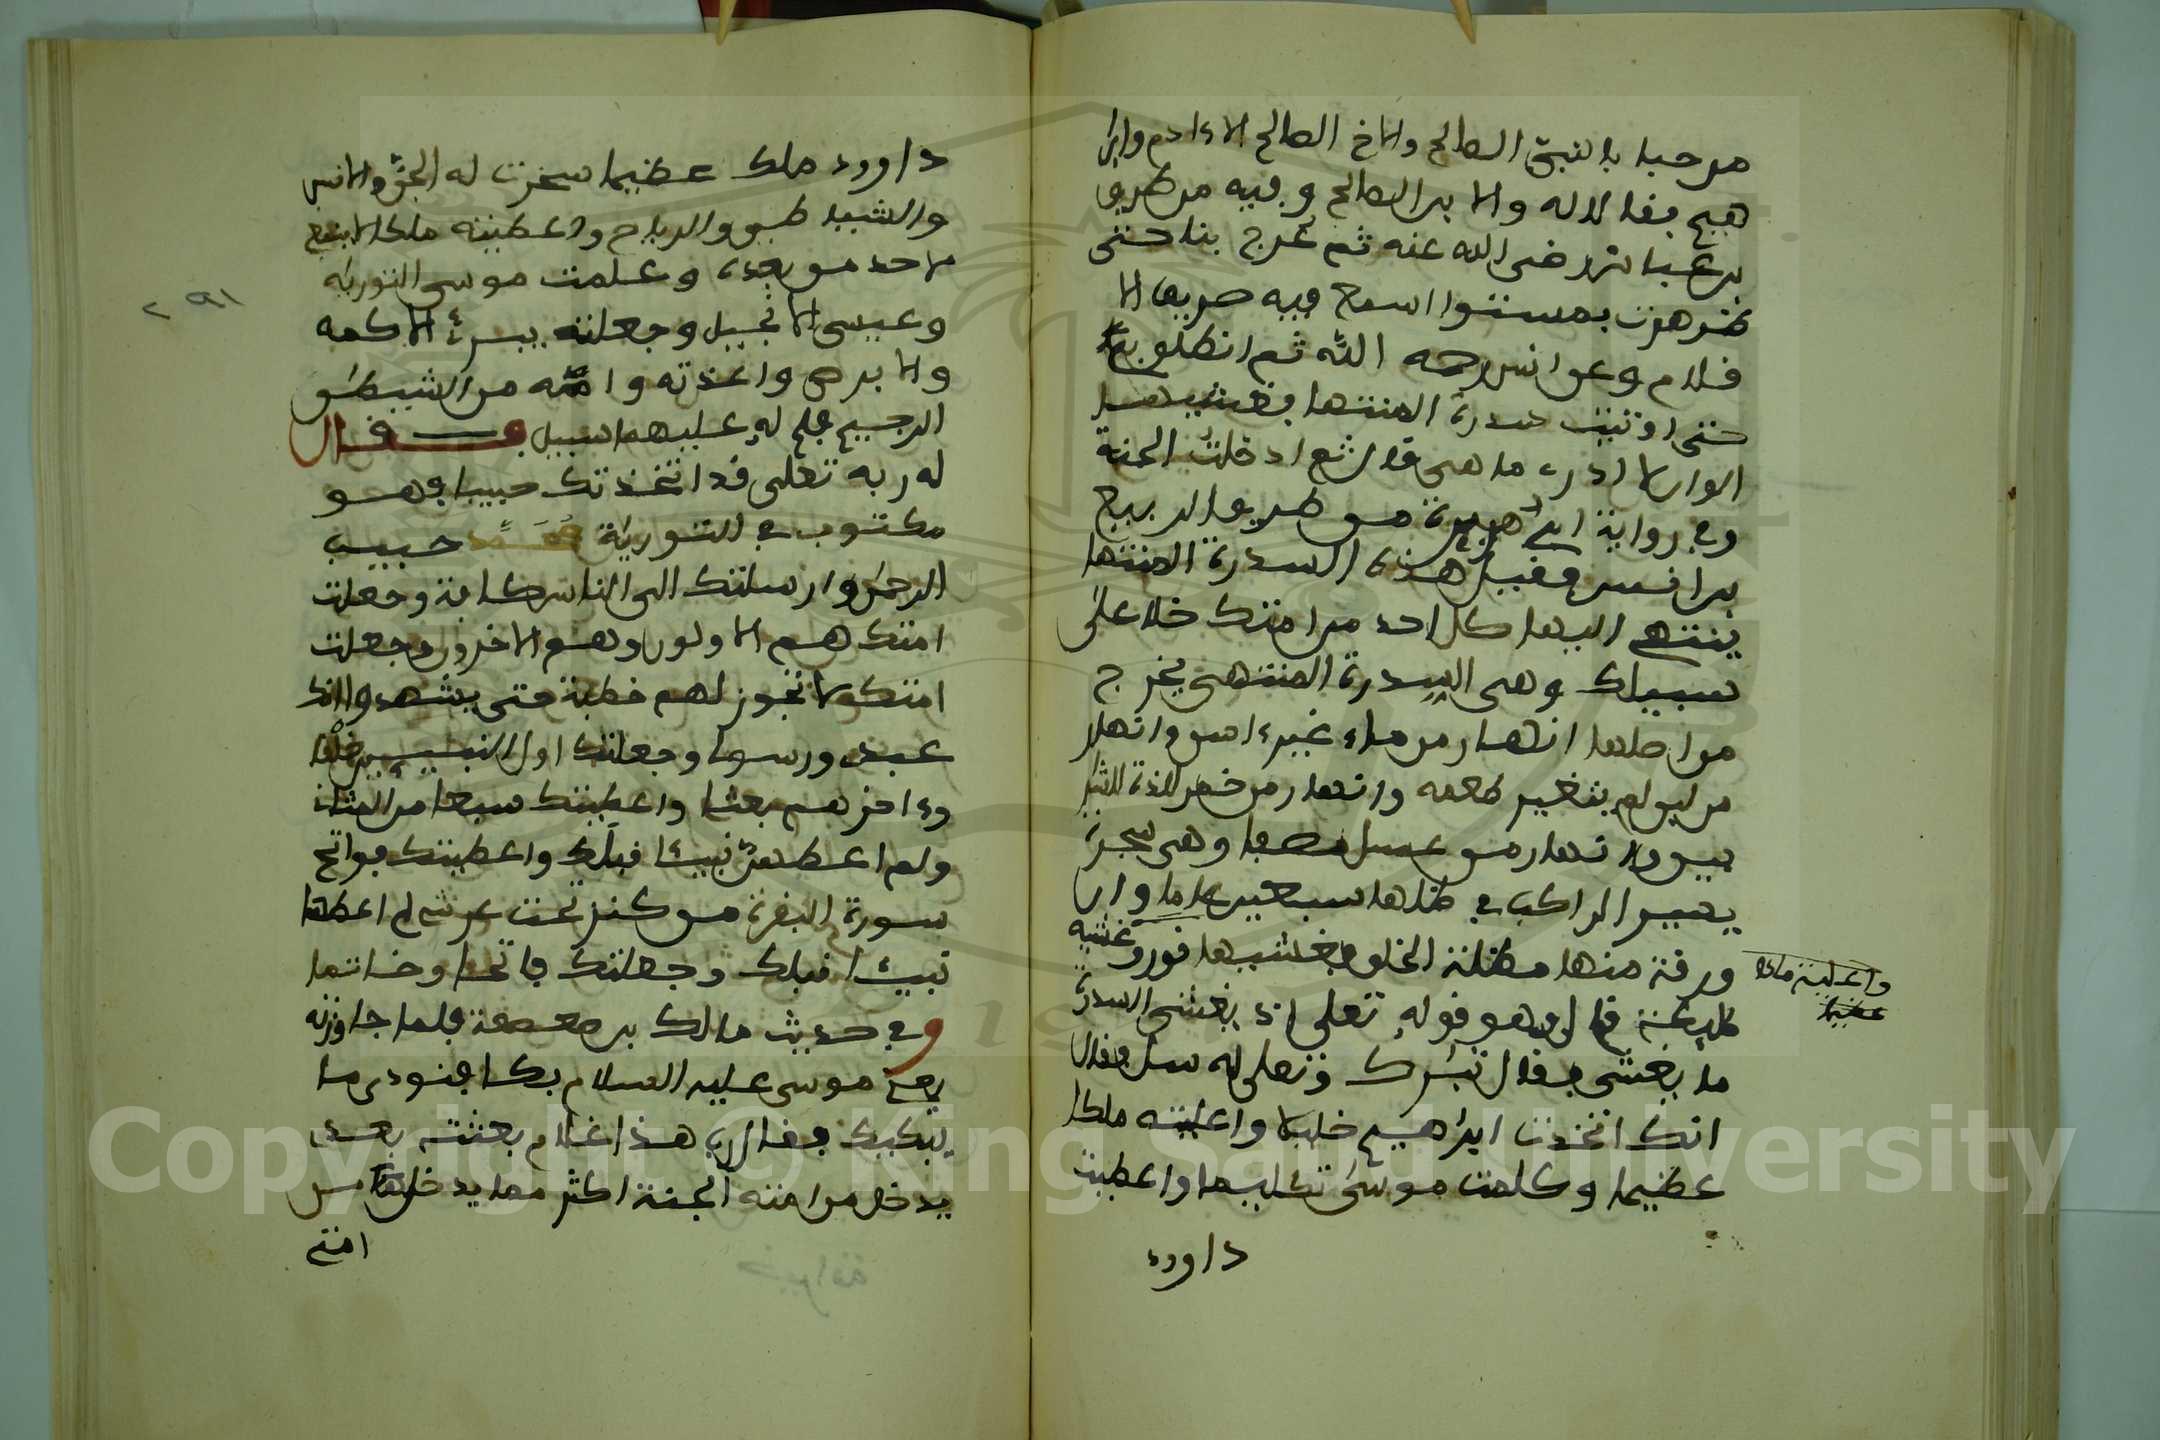 مرحبا بالنبيّ الصالح والاخ الصالح الا ءادم وابرا
هيم فقالا له والابن الصالح وفيه من طريق
ابن عباس رضى الله عنه ثم عرج بنا حتى
ظهرت بمستوا اسمع فيه صريف الا
قلام وعن انس رحمه الله ثم انطلق بى
حتى اوتيت سدرة المنتها فغشيها
الوان لا ادرى ما هى قال ثم ادخلت الجنة
وفى رواية ابى هريرة من طريق الربيع
بن انس فقيل هذه السدرة المنتها
ينتهى اليها كل احد من امتك خلا على
سبيلك وهى السدرة المنتهى يخرج
من اصلها انهار من ماء غير ءاسن وانهار
من لبن لم يتغير طعمه وانهار من خمر لذة للشار
بين وانهار من عسل مصفا وهى شجرة
يسير الراكب فى ظلها سبعين عاما وان
ورقة منها مظلة الخلق فغشيها نور وغشيه
الملئكة قال فهو قوله تعلى اذ يغشى السدرة
ما يغشى فقال تبرك وتعلى له سل فقال
انك اتخذت ابراهيم خليلا واعطيته ملكا
عظيما وكلمت موسى تكليما واعطيت
داوود
واعطيته ملكا
عظيما
داوود ملك عظيما سخرت له الجن والانس
والشياطين والرياح واعطيته ملكا لا ينبغى
لاحد من بعده وعلمت موسى التورية
وعيسى الانجيل وجعلته يبرئ الاكمه
والابرص واعذته وامه من الشيطن
الرجيم فلم له عليهما سبيل فـــقال
له ربه تعلى قد اتخذتك حبيبا فهو
مكتوب فى التورية محمد حبيب
الرحمن وارسلتك الى الناس كافة وجعلت
امتك هم الاولون وهم الاخرون وجعلت
امتك لا تجوز لهم خطبة حتى يشهدوا انك
عبدى ورسولى وجعلتك اول النبيين خلقا
وءاخرهم بعثا واعطيتك سبعا من المثانى
ولم اعطهن نبيئا قبلك واعطيتك فواتح
سورة البقرة من كنز تحت عرشى لم اعطها
نبيئا قبلك وجعلتك فاتحا وخاتما
وفى حديث مالك بن صعصعة فلما جاوزته
يعنى موسى عليه السلام بكا فنودى ما
يبكيك فقال رب هذا غلام بعثته بعدى
يدخل من امته الجنة اكثر مما يدخل من
امتى
Copyright © King Saud University